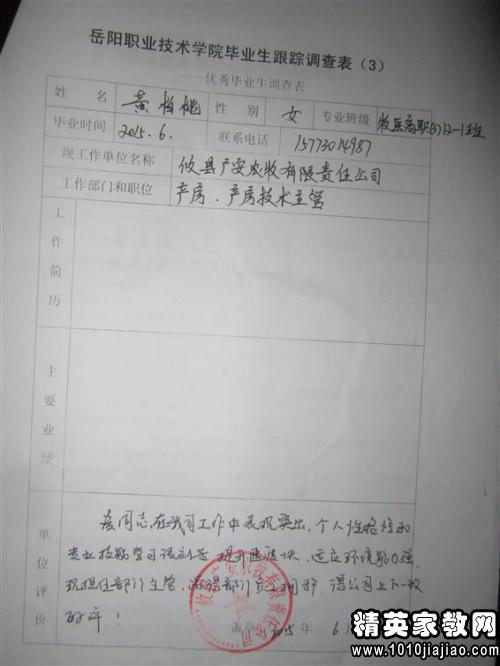 岳阳职业技术学院毕业生跟踪调查表（3）
——优秀毕业生调查表
姓 名 黄 桃 性 别 女 专业班级 牧医高职(3)12-1班
毕业时间 2015.6. 联系电话 15773014987
现工作单位名称 攸县广安农牧有限责任公司
工作部门和职位 产房、产房技术主管
工作简历
主要业绩
单位评价
该同志在我司工作中表现突出，个人性格 和
专业技能学习 提升速度快，适应环境能力强
现担任部门主管，深得部门员工拥护，得公司上下一致
好评！
盖章 2015 6
精英家教网
www.1010jiajiao.com